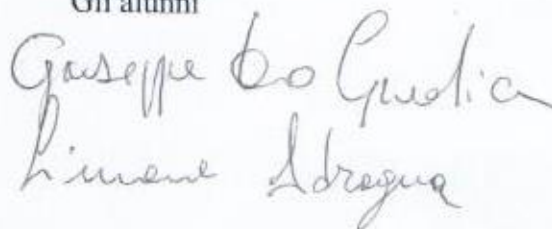 Gli alunni
Giuseppe Lo Giudice
Simone Adragna